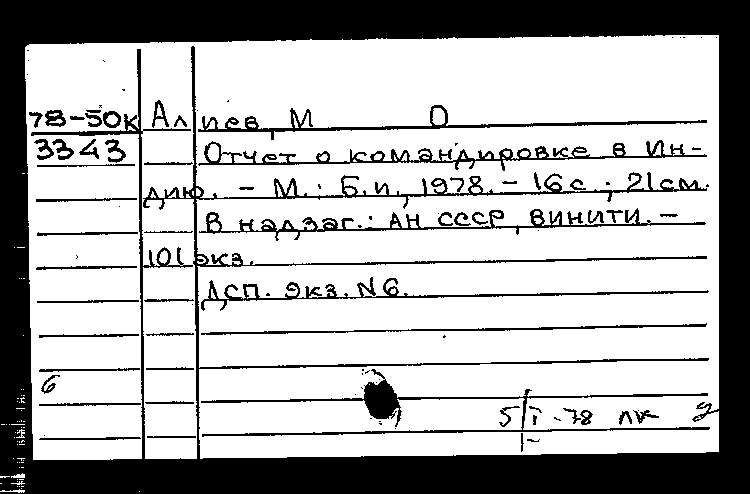 78-50к Алиев, М О
3343 Отчет о командировке в Ин-
дию. - М.: Б.и., 1978. - 16с.; 21см.
В надзаг.: АН СССР, ВИНИТИ. -
101 экз.
ДСП. Экз. N6.
6
5/I-78 лк